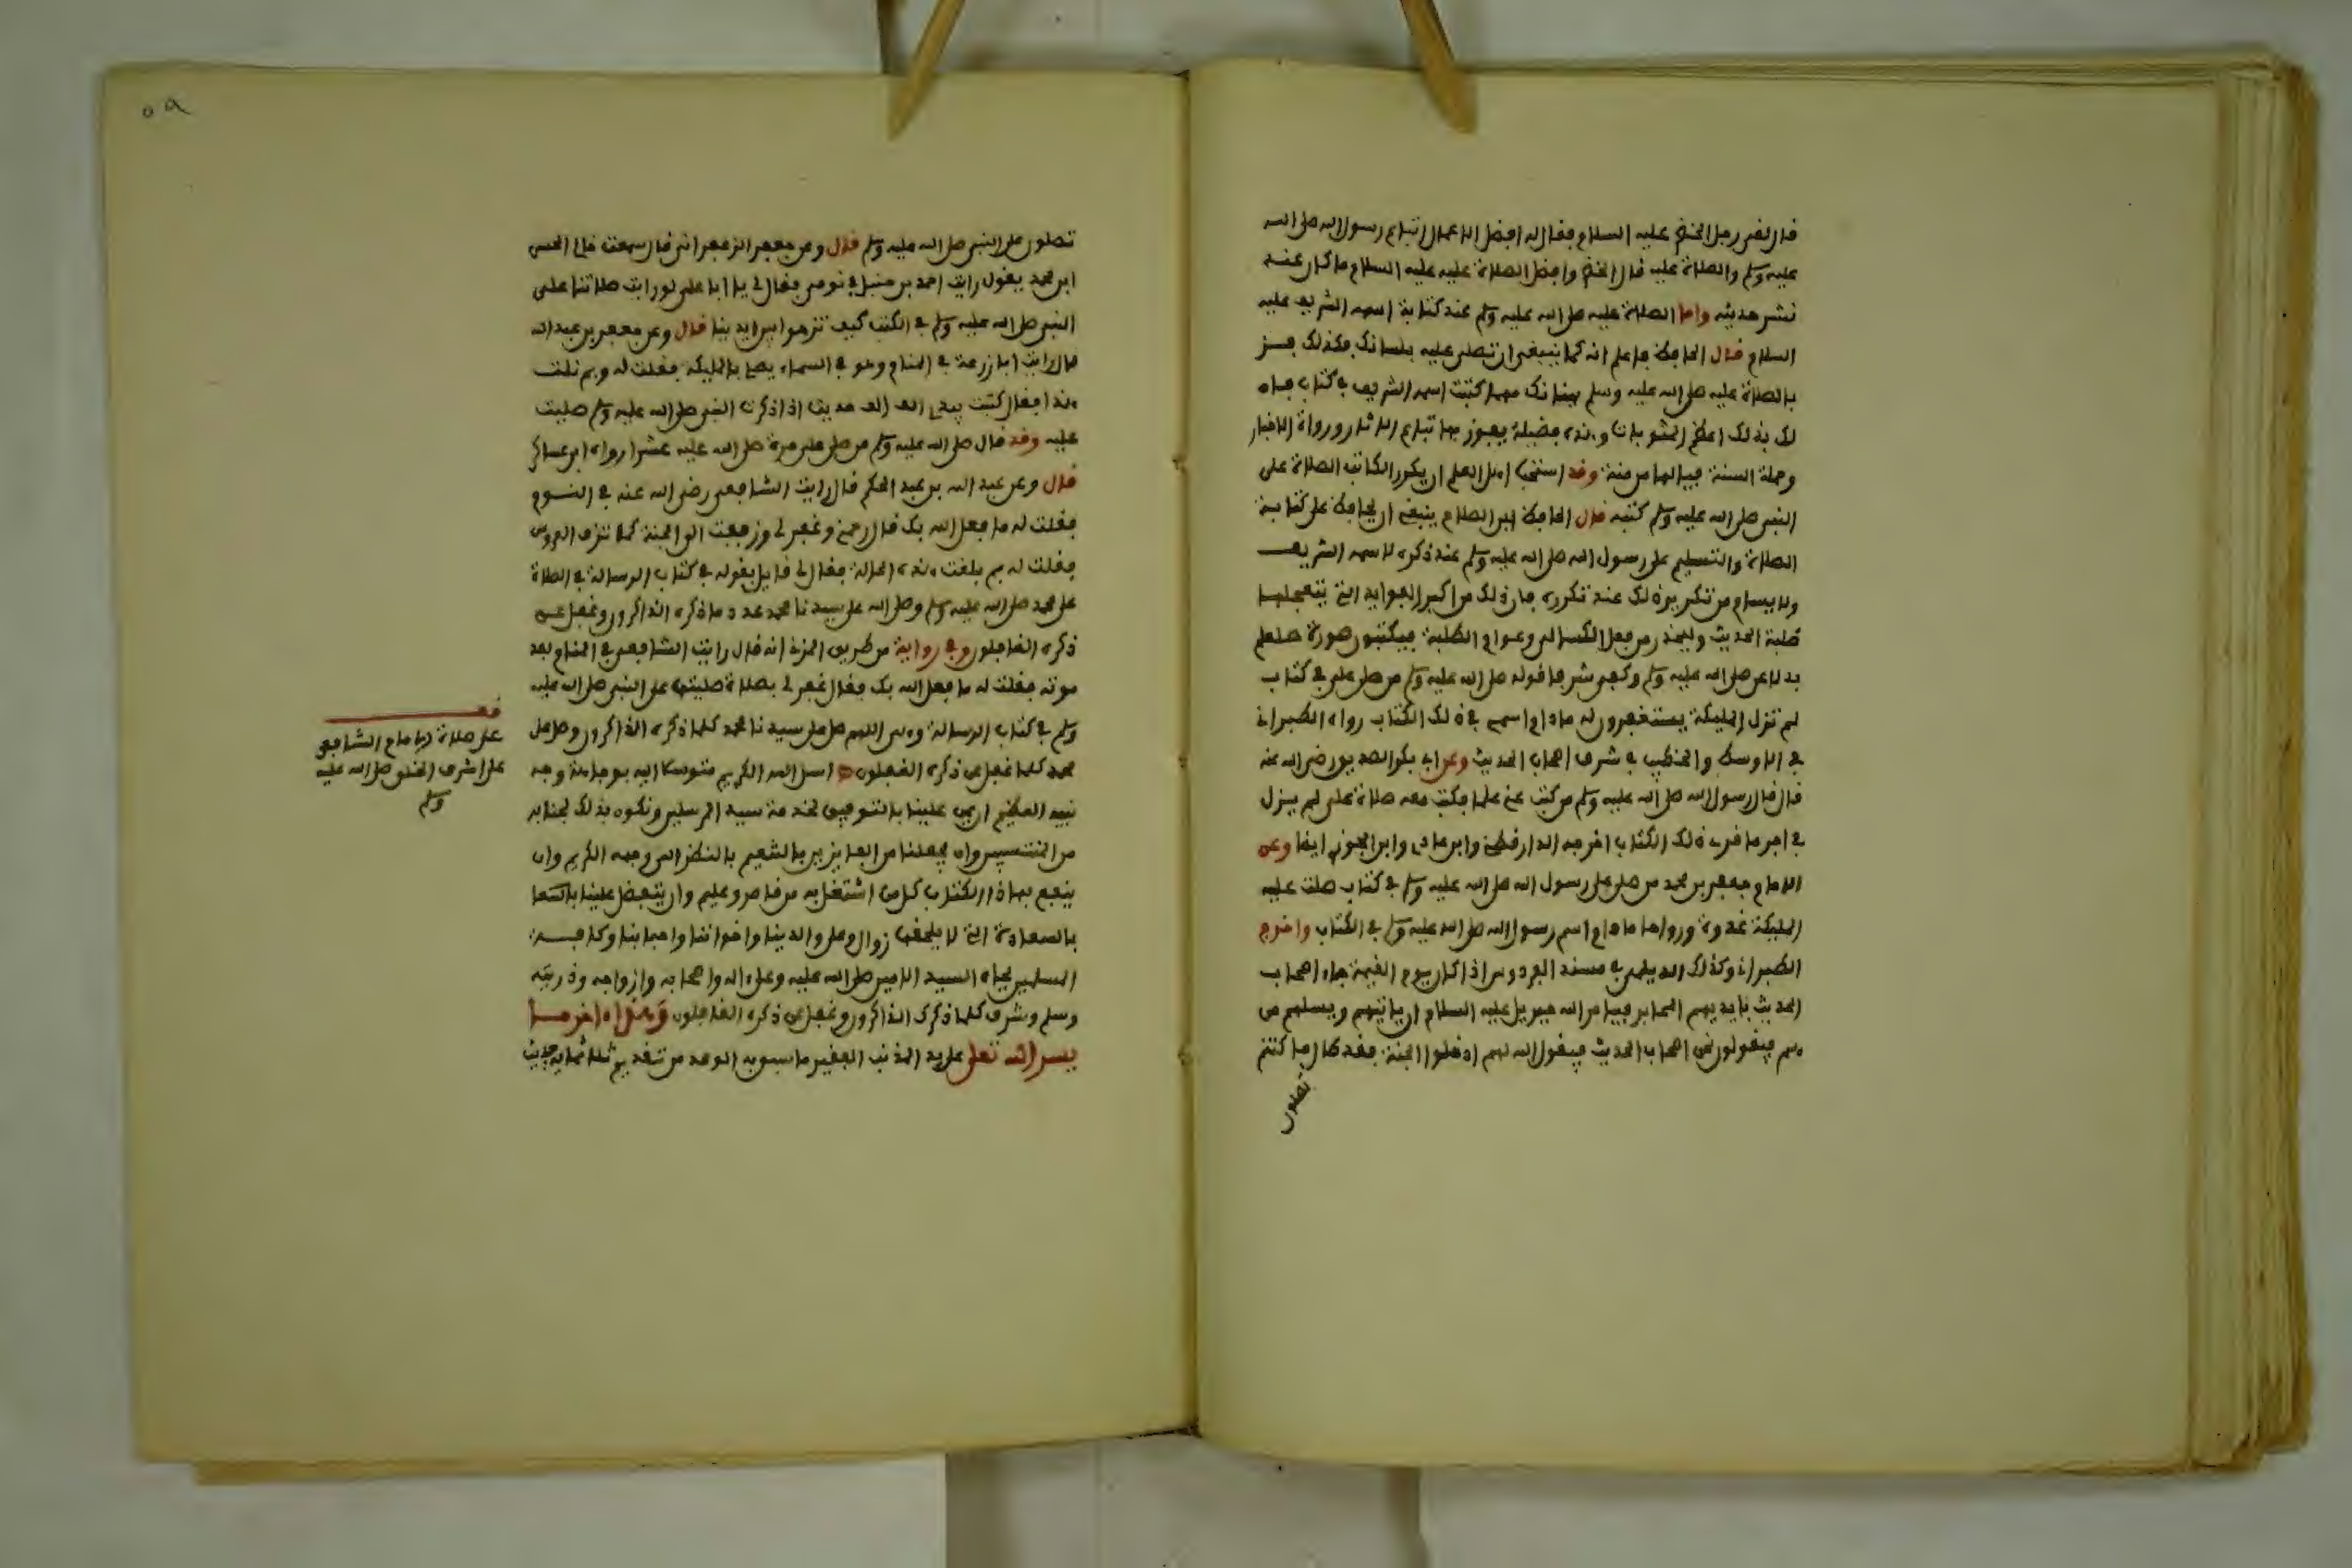 قال لقى رجل الخضر عليه السلام فقال له افضل الاعمال اتباع رسول الله صلى الله
عليه وسلم والصلاة عليه قال الخضر وافضل الصلاة عليه عليه السلام ما كان عند
نشر حديثه واما الصلاة عليه صلى الله عليه وسلم عند كتابة اسمه الشريف عليه
السلام قال الحافظ فاعلم انه كما ينبغي ان تصلى عليه بلسانك فكذلك
بالصلاة عليه صلى الله عليه وسلم ببنانك مهما كتبت اسمه الشريف في كتاب فان
لك بذلك اعظم الثواب وهذه فضيلة يفوز بها تباع الاثار ورواة الاخبار
وحملة السنة فيالها من منة وقد استحب اهل العلم ان يكرر الكاتب الصلاة على
النبي صلى الله عليه وسلم كتبه قال الحافظ ابن الصلاح ينبغي ان يحافظ على كتابة
الصلاة والتسليم على رسول الله صلى الله عليه وسلم عند ذكره لاسمه الشريف
ولا يسام من تكرير ذلك عند تكرره فان ذلك من اكبر الفوايد التي يتعجلها
طلبة الحديث وليحذر من فعل الكسالى وعوام الطلبة فيكتبون صورة صلعم
بدلا عن صلى الله عليه وسلم وكفى شرفا قوله صلى الله عليه وسلم من صلى على في كتاب
لم تزل المليكة يستغفرون له مادام اسمي في ذلك الكتاب رواه الطبراني
في الاوسط والخطيب في شرف اصحاب الحديث وعن ابي بكر الصديق رضي الله عنه
قال قال رسول الله صلى الله عليه وسلم من كتب عني علما فكتب معه صلاة علي لم يزل
في اجر ما قرئ ذلك الكتاب اخرجه الدارقطني وابن عدي وابن الجوزي ايضا وعن
الامام جعفر بن محمد من صلى على رسول الله صلى الله عليه وسلم في كتاب صلت عليه
المليكة غدوة ورواحا مادام اسم رسول الله صلى الله عليه وسلم في الكتاب واخرج
الطبراني وكذلك الديلمي في مسند الفردوس اذا كان يوم القيمة جاء اصحاب
الحديث بايديهم المحابر فيامر الله جبريل عليه السلام ان ياتيهم ويسلهم من
هم فيقولون نحن اصحاب الحديث فيقول الله لهم ادخلوا الجنة فقد طال ما كنتم
تصلون
٥٩
تصلون على النبي صلى الله عليه وسلم قال وعن جعفر الزعفراني قال سمعت خالي الحسن
ابن محمد يقول رايت احمد بن حنبل في نومي فقال لي يا ابا علي لو رايت صلاتنا على
النبي صلى الله عليه وسلم في الكتب كيف تزهوا بين ايدينا قال وعن جعفر بن عبد الله
قال رايت ابا زرعة في المنام وهو في السماء يصلي بالمليكة فقلت له وبم نلت
هذا فقال كتبت بيدي الف الف حديث اذا ذكرت النبي صلى الله عليه وسلم صليت
عليه وقد قال صلى الله عليه وسلم من صلى علي مرة صلى الله عليه عشرا رواه ابن عساكر
قال وعن عبد الله بن عبد الحكم قال رايت الشافعي رضي الله عنه في النوم
فقلت له ما فعل الله بك قال رحمني وغفر لي وزففت الى الجنة كما تزف العروس
فقلت له بم بلغت هذه الحالة فقال لي قايل بقوله في كتاب الرسالة في الصلاة
على محمد صلى الله عليه وسلم وصلى الله على سيدنا محمد عدد ما ذكره الذاكرون وغفل عن
ذكره الغافلون وفي رواية من طريق المزني انه قال رايت الشافعي في المنام بعد
موته فقلت له ما فعل الله بك فقال غفر لي بصلاة صليتها على النبي صلى الله عليه
وسلم في كتاب الرسالة وهي اللهم صل على سيدنا محمد كلما ذكره الذاكرون وصل على
محمد كلما غفل عن ذكره الغفلون اسل الله الكريم متوسلا اليه بوجاهة وجه
نبيه العظيم ان يمن علينا بالتوفيق لخدمة سيد المرسلين ونكون بذلك لجنابه
من المنتسبين وان يجعلنا من الفايزين بالنعيم بالنظر الى وجهه الكريم وان
ينفع بهاذا الكتاب كل من اشتغل به من قاصر وعليم وان يتفضل علينا
بالسعادة التي لا يلحقها زوال وعلى والدينا واخواننا واحبابنا وكافة
المسلمين بجاه السيد الامين صلى الله عليه وعلى اله واصحابه وازواجه وذريته
وسلم وشرف كلما ذكرك الذاكرون وغفل عن ذكره الغافلون وهذا اخر ما
يسر الله تعلى على يد المذنب الفقير ما سبق به الوعد من تقديم ثلاثماية حديث
قف
على صلاة الامام الشافعي
على اشرف الخلق صلى الله عليه
وسلم